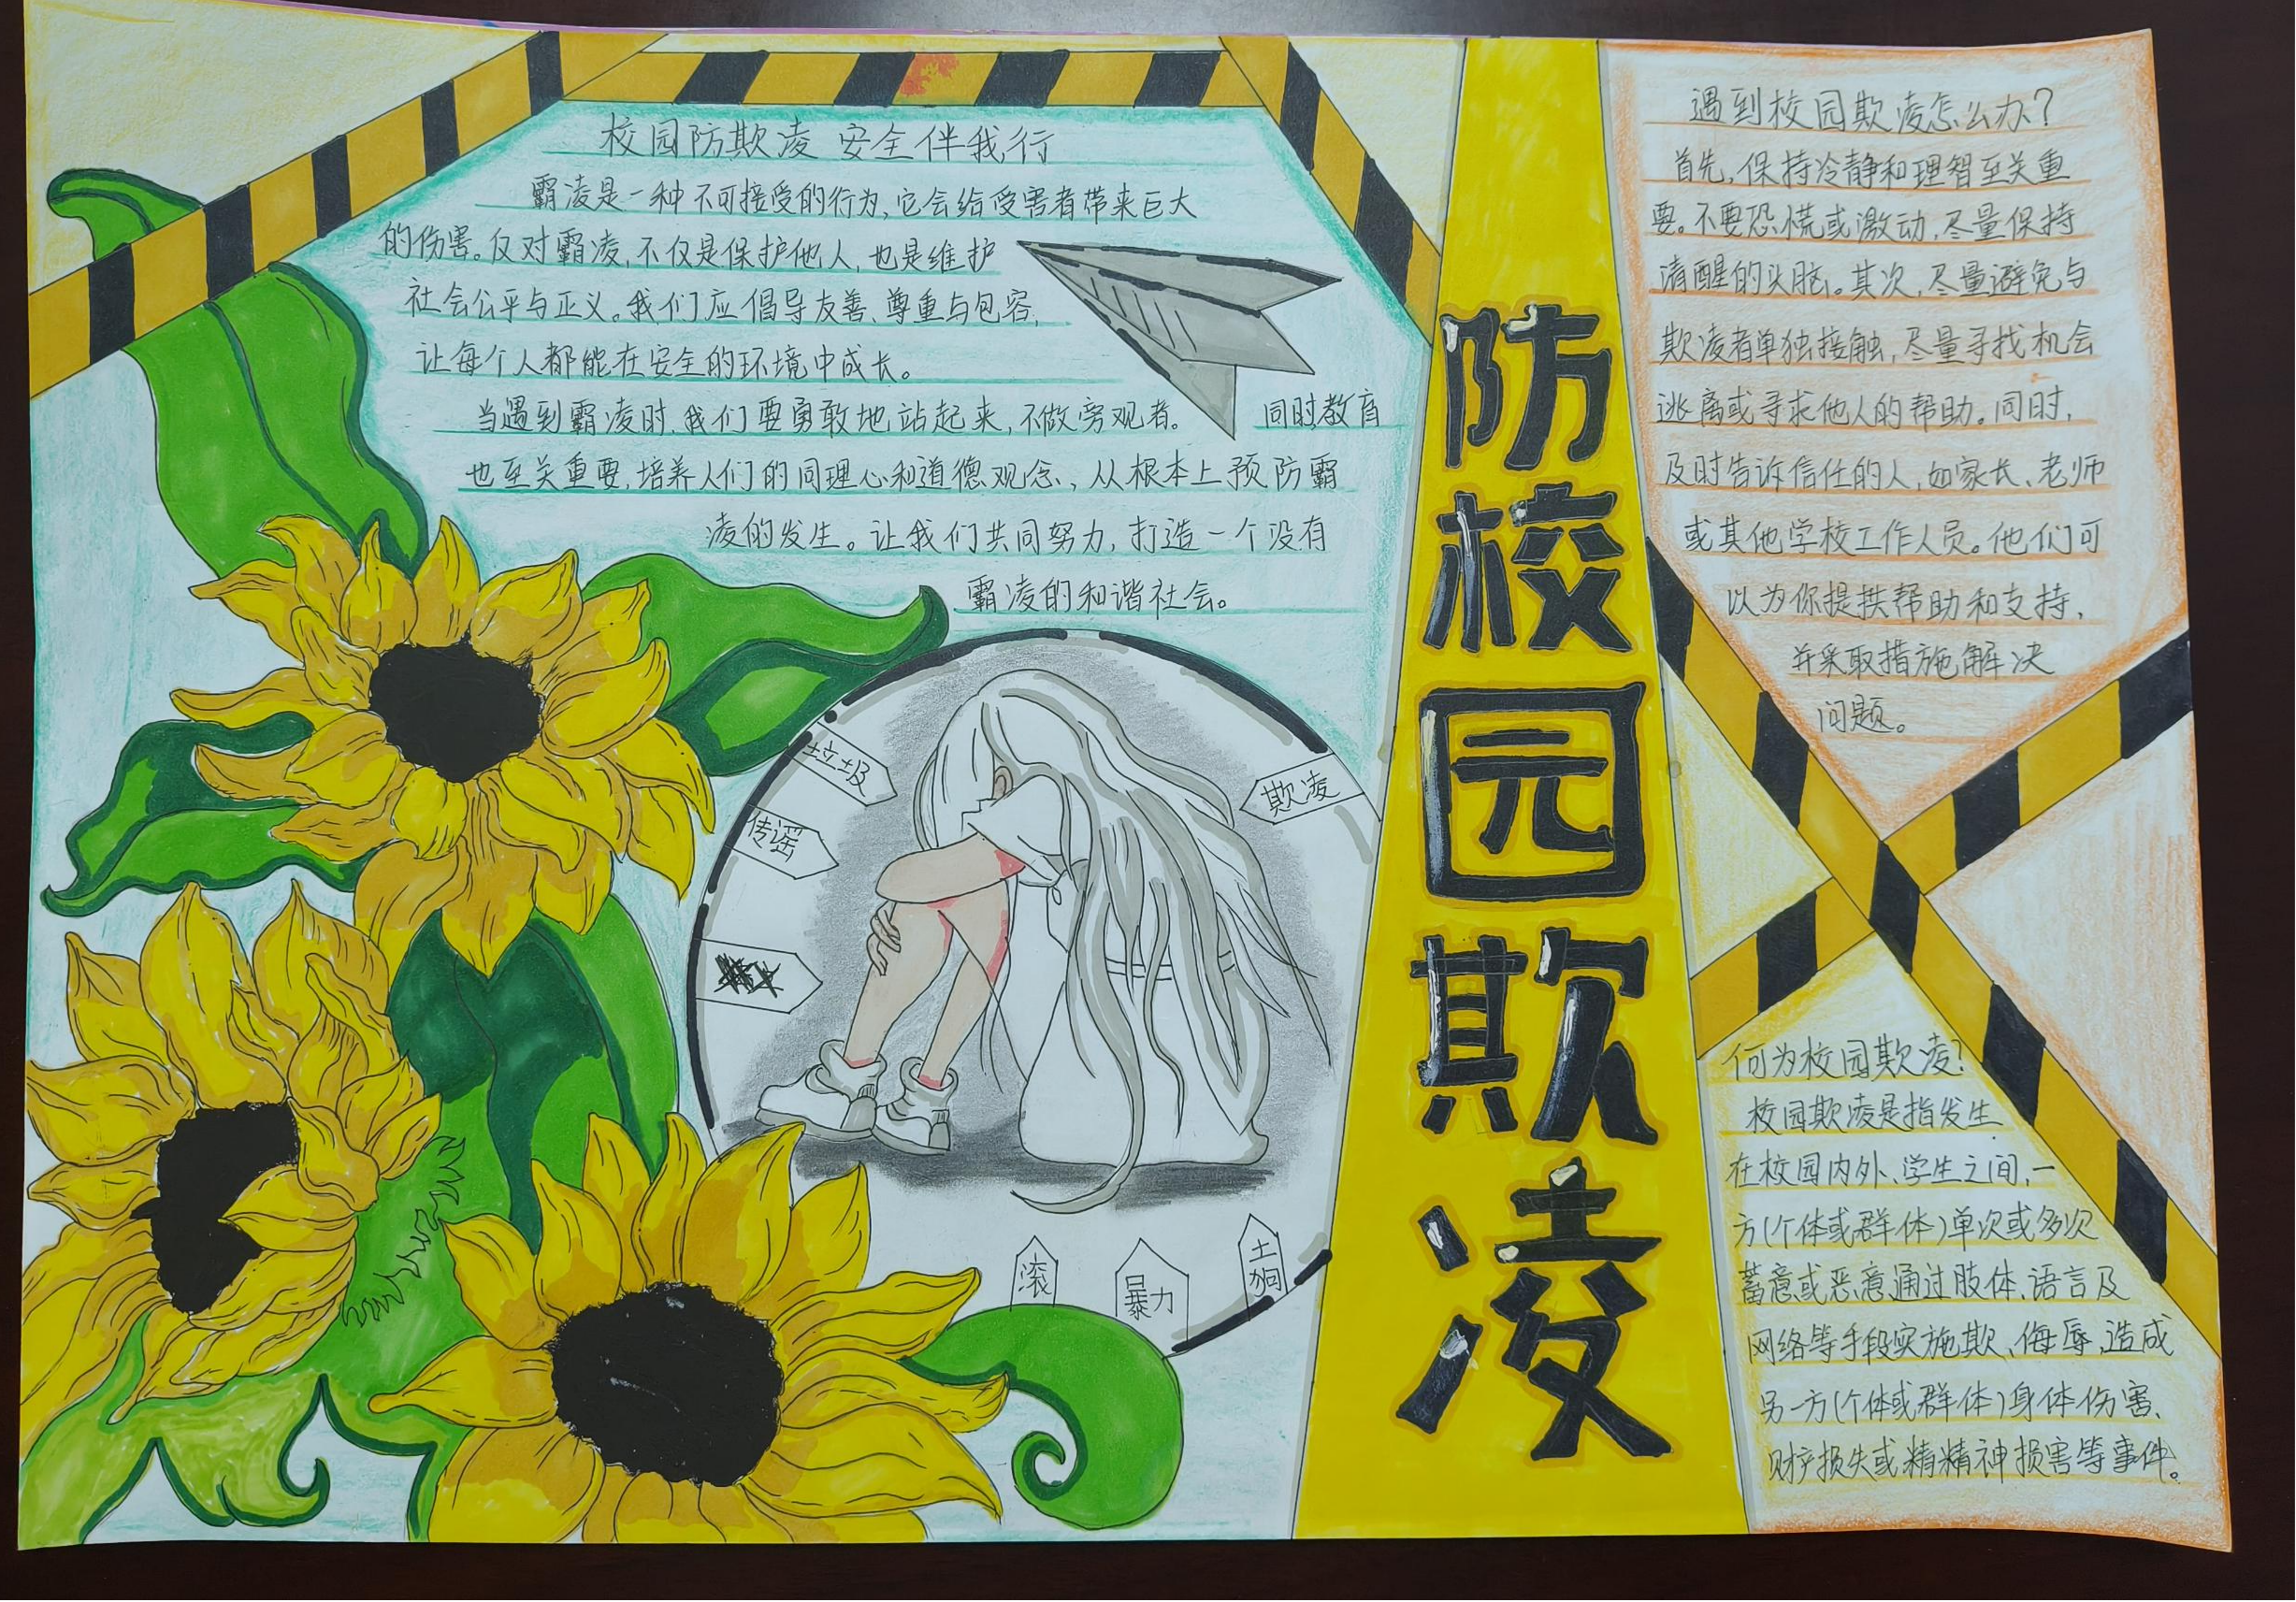 校园防欺凌 安全伴我行
霸凌是一种不可接受的行为,它会给受害者带来巨大
的伤害。反对霸凌,不仅是保护他人,也是维护
社会公平与正义。我们应倡导友善、尊重与包容,
让每个人都能在安全的环境中成长。
当遇到霸凌时,我们要勇敢地站起来,不做旁观者。 同时,教育
也至关重要,培养人们的同理心和道德观念,从根本上预防霸
凌的发生。让我们共同努力,打造一个没有
霸凌的和谐社会。
垃圾
传谣
欺凌
滚
暴力
土狗
防
校
园
欺
凌
遇到校园欺凌怎么办?
首先,保持冷静和理智至关重
要。不要恐慌或激动,尽量保持
清醒的头脑。其次,尽量避免与
欺凌者单独接触,尽量寻找机会
逃离或寻求他人的帮助。同时,
及时告诉信任的人,如家长、老师
或其他学校工作人员。他们可
以为你提拱帮助和支持,
并采取措施解决
问题。
何为校园欺凌?
校园欺凌是指发生
在校园内外、学生之间,一
方(个体或群体)单次或多次
蓄意或恶意通过肢体、语言及
网络等手段实施欺、侮辱,造成
另一方(个体或群体)身体伤害、
财产损失或精精神损害等事件。